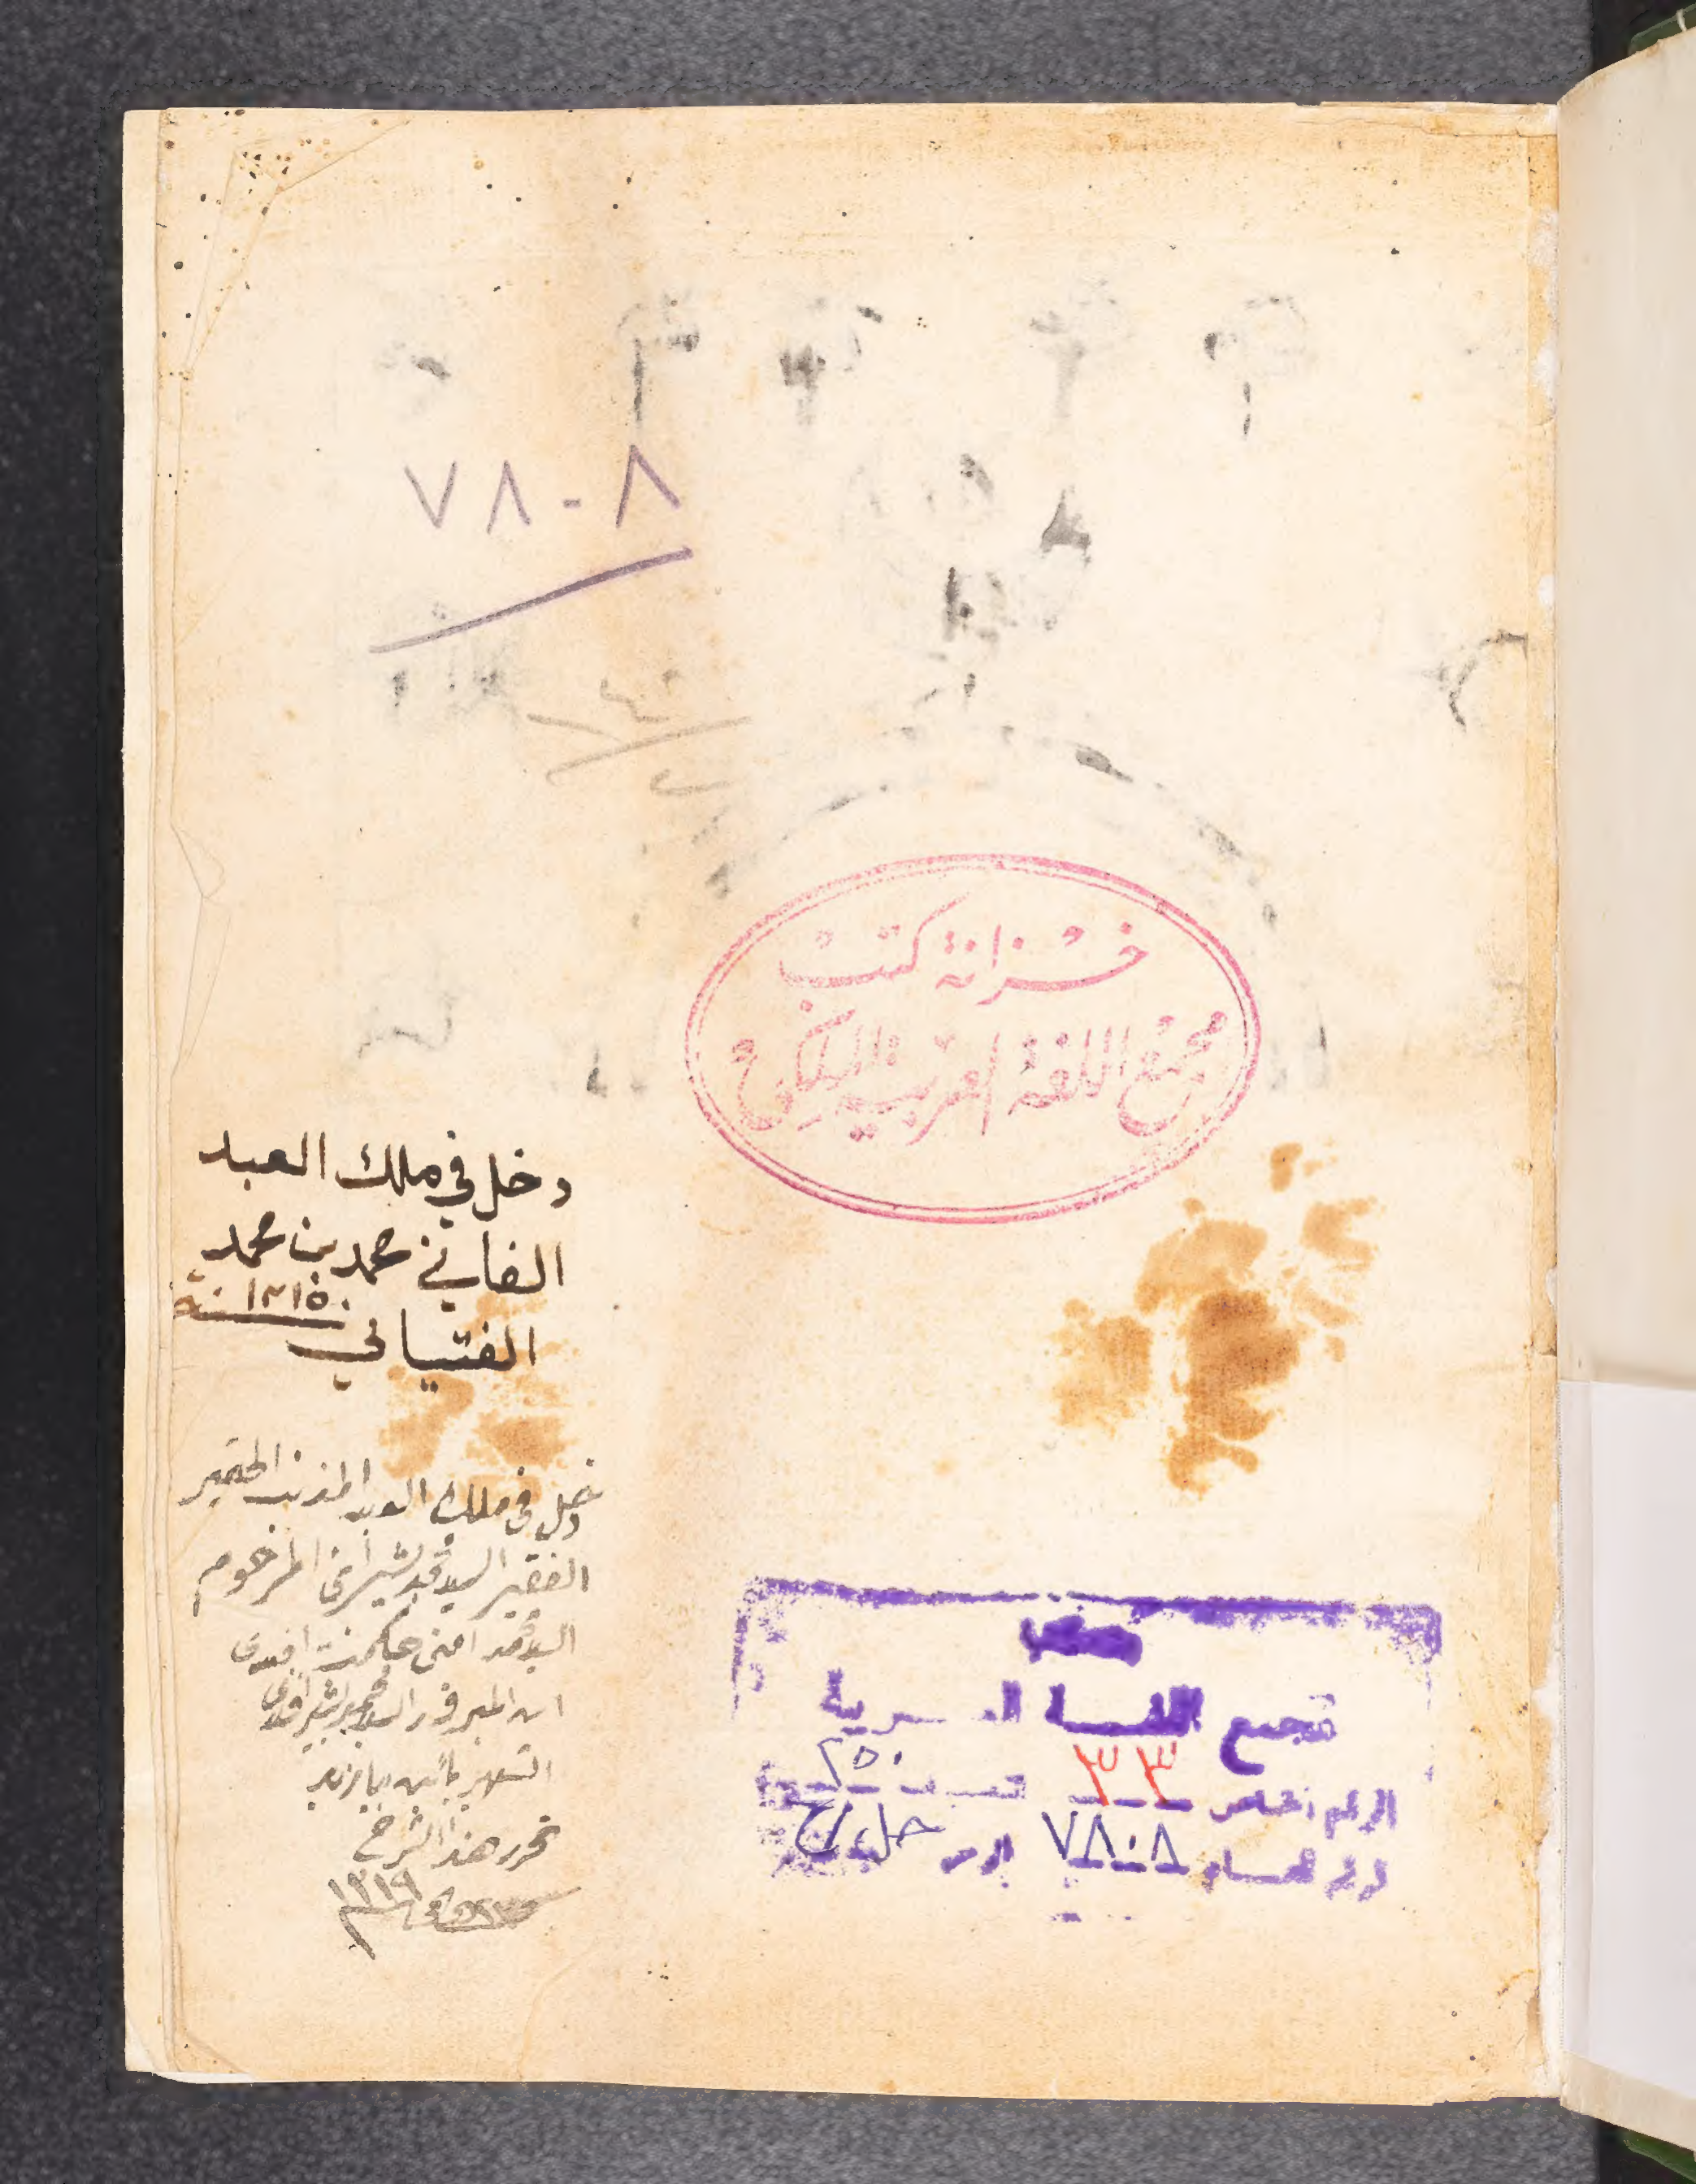 ٧٨٠٨
خزانة كتب
مجمع اللغة العربية الملكي
دخل في ملك العبد
الفاني محمد بن محمد
١٢١٥٠ سنة
الفتياني
دخل في ملك العبد المذنب الحقير
الفقير السيد محمد بشير ابن المرحوم
السيد محمد امين حكمت افندي
ابن المبرور السيد محمد بشير افندي
الشهير
تحرر هذا الشرح
١٣١٩
مجمع اللغة العربية
الرقم الخاص ٣٣ ٢٥٠
الرقم العام ٧٨٠٨